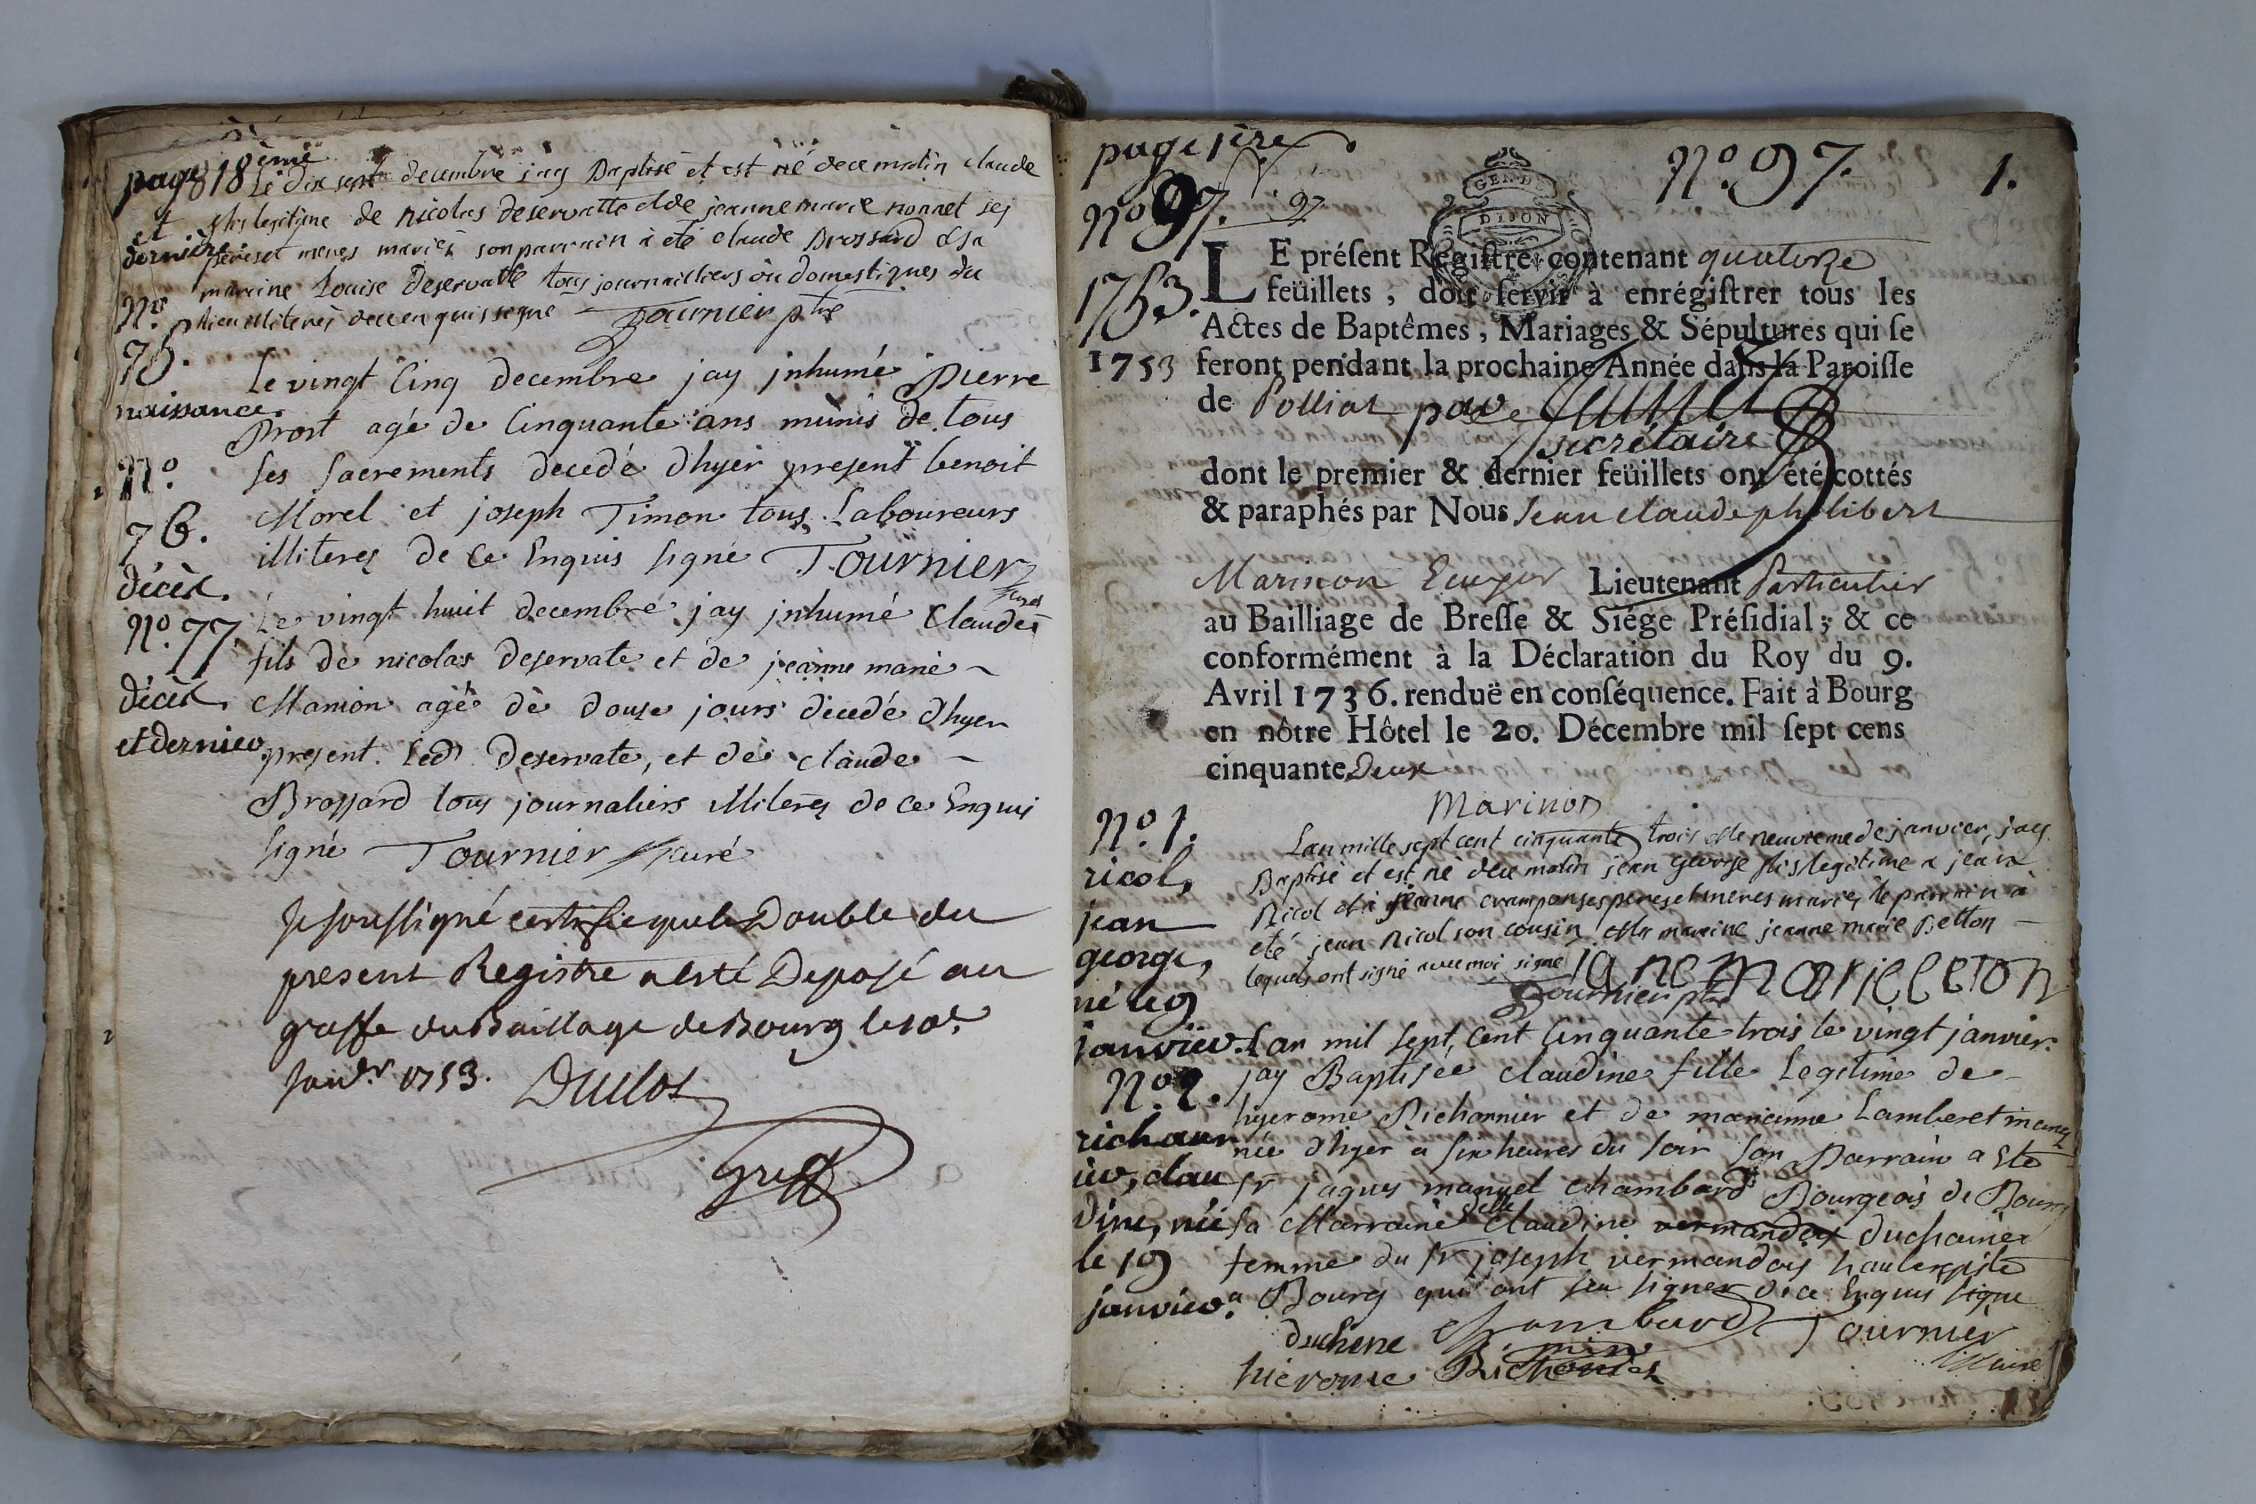 page 18ème
et
dernière
Nº
75.
naissance.
Le dix sept decembre jay Baptisé et est né de ce matin claude
fils legitime de nicolas deservatte et de jeanne marie nonnet ses
peres et meres mariés son parrain à eté claude Brossard & sa
maraine Louise deservatte tous journailliers ou domestiques du
lieu illiterés de ce enquis signé Tournier ptre
Nº
76.
décès.
Le vingt Cinq decembre jay jnhumé Pierre
Prost agé de Cinquante ans munis de tous
ses sacrements decedé dhyer present benoit
Morel et joseph Timon tous Laboureurs
illiterez de Ce Enquis signé Tournier
curé
Nº 77.
décès.
et dernier
Le vingt huit decembre jay jnhumé Claude
fils de nicolas deservate et de jeanne marie
Manion agé de douze jours decedé dhyer
present led deservate, et de claude
Brossard tous journaliers illiterez de ce Enquis
signé Tournier curé
Je soussigné certifie que le Double du
present Registre a esté Deposé au
greffe du Baillage de Bourg le 10e
janvr 1753. Duclos
greff
page 1ère
Nº 97. 97
Nº 97.
1.
GEN. DE
DIJON
1753.
1753
LE préſent Regiſtre, contenant quatorze
feüillets, doit ſervir à enrégiſtrer tous les
Actes de Baptêmes, Mariages & Sépultures qui ſe
feront pendant la prochaine Année dans la Paroiſſe
de Polliat
secrétaire
dont le premier & dernier feüillets ont été cottés
& paraphés par Nous Jean Claude philibert
Marinon Ecuyer Lieutenant Particulier
au Bailliage de Breſſe & Siége Préſidial; & ce
conformément à la Déclaration du Roy du 9.
Avril 1736. renduë en conſéquence. Fait à Bourg
en nôtre Hôtel le 20. Décembre mil ſept cens
cinquante Deux
Marinon
Nº 1.
nicol,
jean
george,
né le 9
janvier.
Lan mille sept cent cinquante trois & le neuvieme de janvier, jay
Baptisé et est né de ce matin jean george fils legitime a jean
Nicol et a jeanne cramponses peres et meres mariés le parrain a
eté jean Nicol son cousin & la maraine jeanne marie Betton
lequels ont signé avec moi signé jane marie beton
Tournier ptre
Nº 2.
richaun
ier, clau
dine, née
le 19
janvier.
Lan mil sept cent Cinquante trois le vingt janvier
jay Baptisée claudine fille Legitime de
hyerome Richonnier et de marianne Lamberet mariez
née dhyer a six heures du soir son Parrain a Eté
sr jaques manuel chambard Bourgeois de Bourg
sa Marraine delle Claudine vermandois duchaine
femme du sr joseph vermandois hautexiste
a Bourg qui ont seu signer de ce Enquis signé
duchene chambard Tournier
curé
hierome Richonier